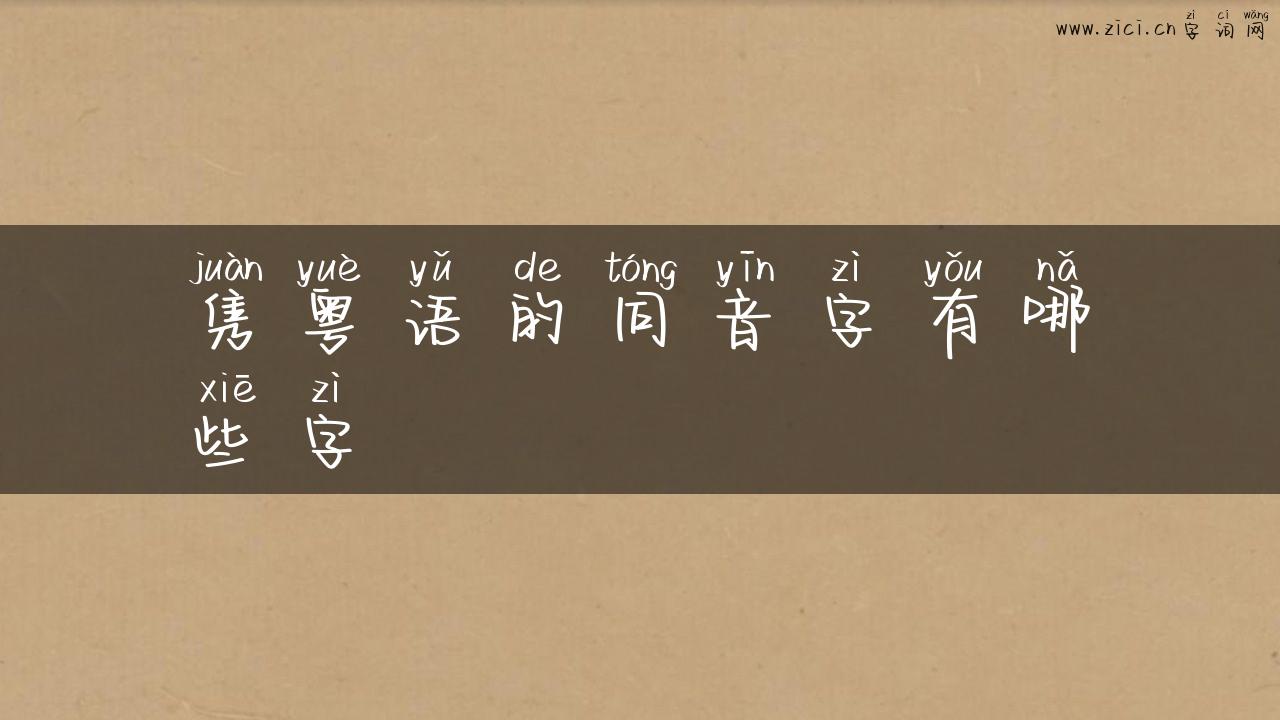 zì cí wǎng
www.zici.cn 字词网
juàn yuè yǔ de tóng yīn zì yǒu nǎ
隽粤语的同音字有哪
xiē zì
些字